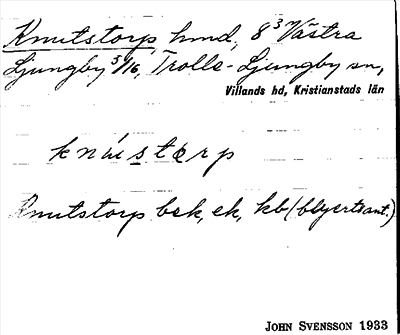 Knutstorp, hmd, 8³ Västra
Ljungby 5/16, Trolle-Ljungby sn,
Villands hd, Kristianstads län
Knutstorp bsk, ek, kb (blyertsant.)
JOHN SVENSSON 1933